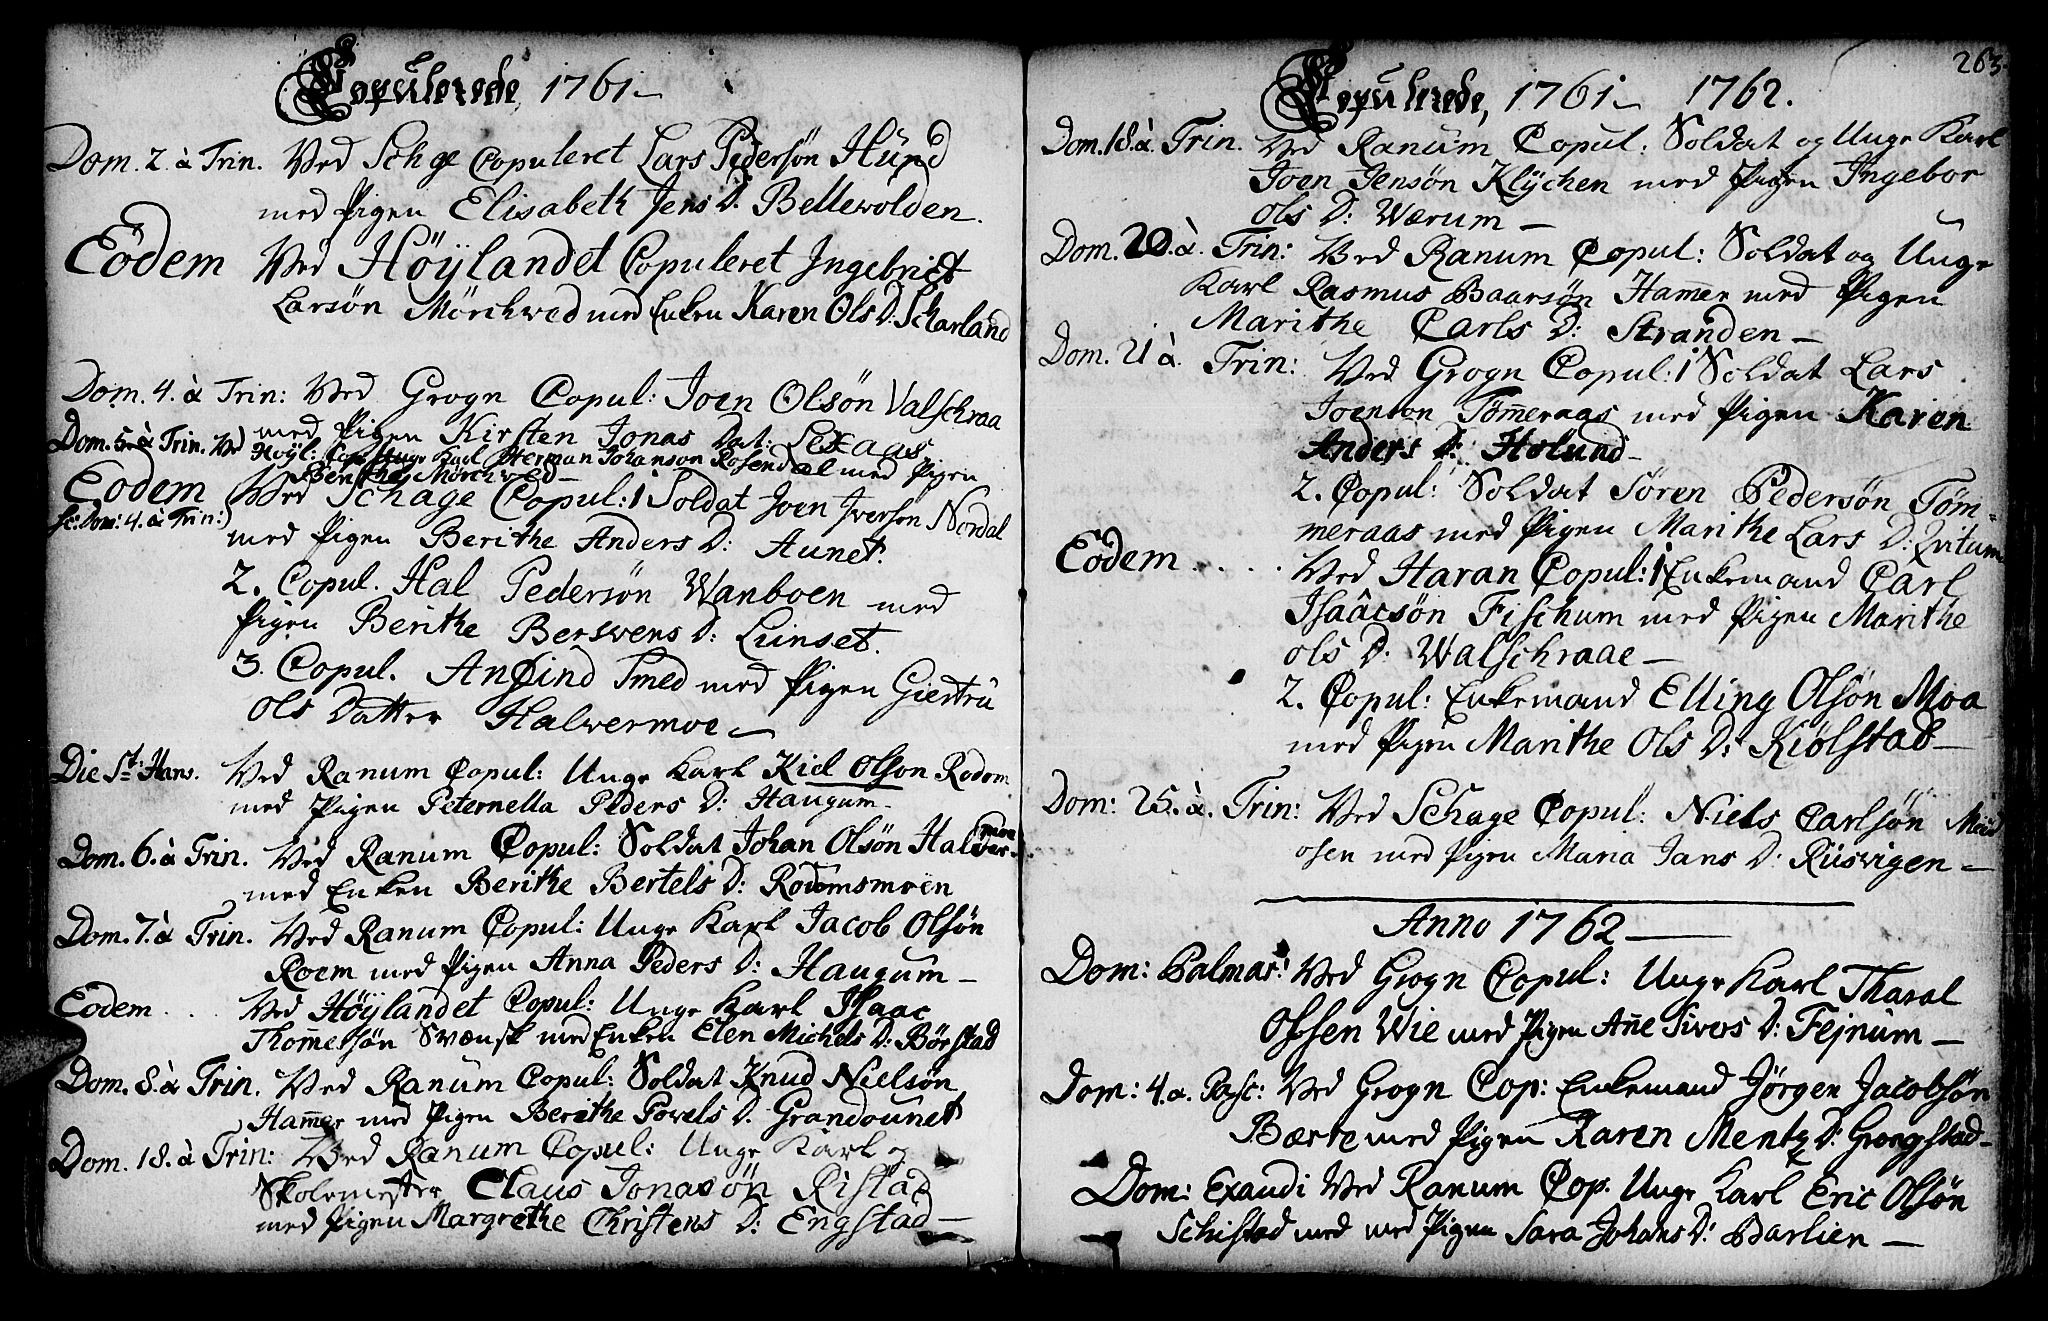 Copulerede, 1761
Dom. 2. à Trin. Ved Schge Copuleret Lars Pedersön Hund
med Pigen Elisabeth Jens D. Bellewolden.
Eodem Ved Höÿlandet Copuleret Ingebrict
Larsön Mörchwed med Enken Karen Ols D. Scharland
Dom. 4. à Trin: Ved Grogn Copul: Joen Olsön Valschraa
med Pigen Kirsten Jonas Dat: Lexaas.
Dom. 5. à Trin. Ved Höyl: Cop: Unge Karl Herman Johanson Rosendal med Pigen
Berithe Mörchwed
Eodem Ved Schage Copul: 1 Soldat Joen Iverson Nordal
sc: Dom: 4. à Trin:
med Pigen Berithe Anders D: Aunet.
2. Copul. Hal Pedersön Wanboen med
Pigen Berithe Berswens D: Linset.
3. Copul. Anfind Smed med Pigen Giertru
Ols Datter Halwermoe
Die St: Hans. Ved Ranum Copul: Unge Karl Kiel Olson Rodem
med Pigen Peternella Peders D: Haugum
Dom. 6. à Trin. Ved Ranum Copul: Soldat Johan Olsön Halver
moe
med Enken Berithe Bertels D: Rodemsmoen
Dom. 7. à Trin. Ved Ranum Copul: Unge Karl Jacob Olsön
Roem med Pigen Anna Peders D: Haugum
Eodem . . Ved Höÿlandet Copul: Unge Karl Isaac
Thomesön Svænsk med Enken Elen Michels D: Börstad
Dom. 8. à Trin. Ved Ranum Copul: Soldat Knud Nielsön
Hamer med Pigen Berithe Povels D. Grandounet
Dom. 18. à Trin: Ved Ranum Copul: Unge Karl og
Skolemester Claus Jonasön Ristad
med Pigen Margrethe Christens D: Engstad
263.
Copulerede, 1761 1762.
Dom. 18. à Trin. Ved Ranum Copul: Soldat og Unge Karl
Joen Jensön Klÿchen med Pigen Ingebor
Ols D: Wærum
Dom. 20. à. Trin: Ved Ranum Copul: Soldat og Unge
Karl Rasmus Baarsön Hamer med Pigen
Marithe Carls D: Stranden
Dom. 21 à Trin: Ved Grogn Copul: 1 Soldat Lars
Joenson Tömeraas med Pigen Karen
Anders D: Holund
2. Copul: Soldat Sören Pedersön Töm-
meraas med Pigen Marithe Lars D: Qvitum
Eodem . . . . Ved Haran Copul: 1 Enkemand Carl
Isaacsön Fischum med Pigen Marithe
Ols D: Walschraae
2. Copul: Enkemand Elling Olsön Moa
med Pigen Marithe Ols D: Kiölstad
Dom: 25. à. Trin: Ved Schage Copul: Niels Carlsön
osen med Pigen Maria Jans D: Riisvigen
Anno 1762
Dom: Palmar: Ved Grogn Copul: Unge Karl Tharal
Olssen Wie med Pigen Ane Sivers D: Fejnum
Dom: 4. a. Pasc: Ved Grogn Cop: Enkemand Jörgen Jacobsön
Bærte med Pigen Karen Mentz D: Grongstad
Dom: Exaudi Ved Ranum Cop. Unge Karl Eric Olsön
Schistad med med Pigen Sara Johans D: Barlien